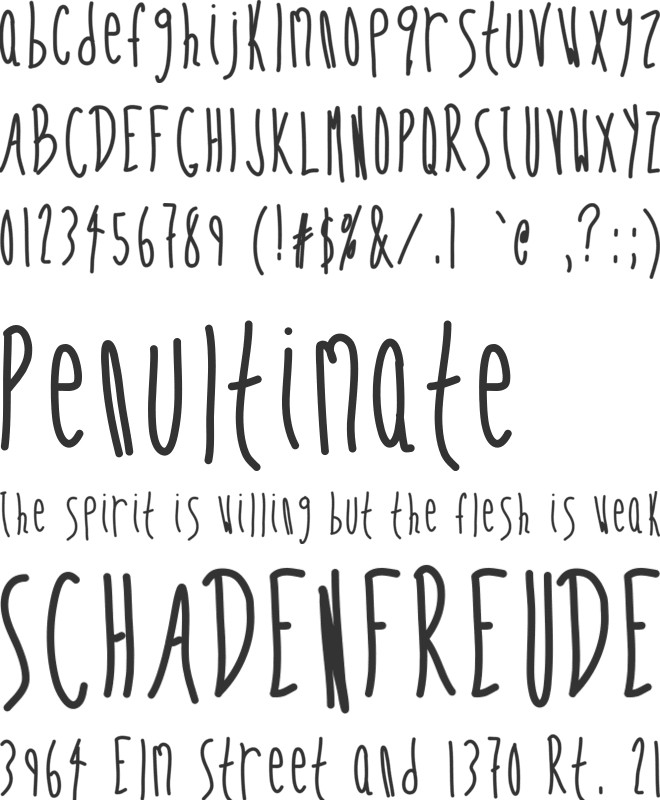 abcdefghijklmnopqrstuvwxyz
ABCDEFGHIJKLMNOPQRSTUVWXYZ
0123456789 (!#$%&/.| `@ ,?:;)
Penultimate
The spirit is willing but the flesh is weak
SCHADENFREUDE
3964 Elm Street and 1370 Rt. 21